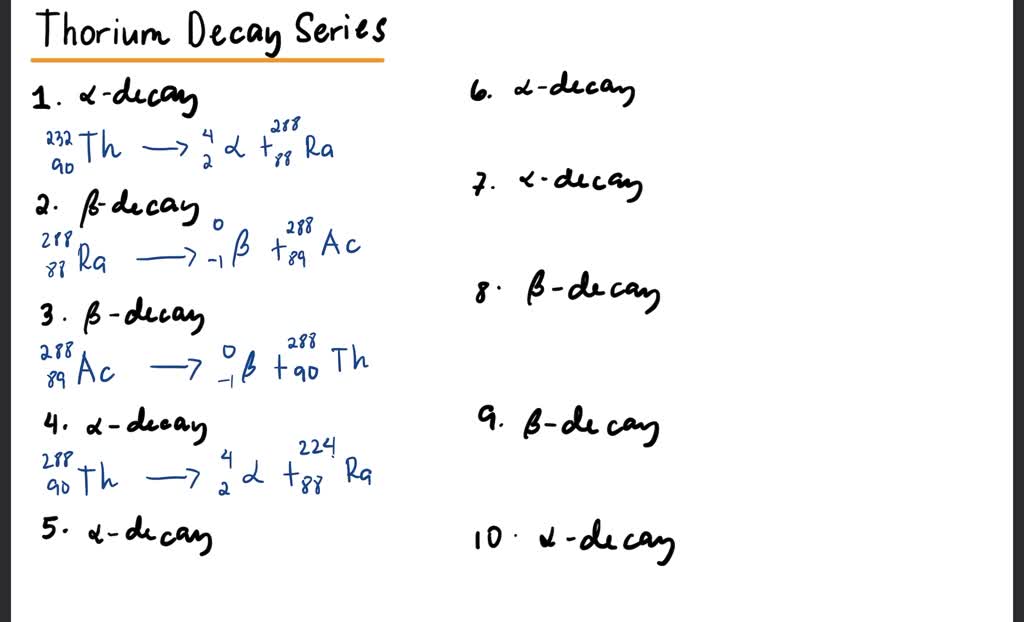 Thorium Decay Series
1. α-decay
²³²₉₀Th → ⁴₂α + ²⁸⁸₈₈Ra
2. β-decay
²⁸⁸₈₈Ra → ⁰₋₁β + ²⁸⁸₈₉Ac
3. β-decay
²⁸⁸₈₉Ac → ⁰₋₁β + ²⁸⁸₉₀Th
4. α-decay
²⁸⁸₉₀Th → ⁴₂α + ²²⁴₈₈Ra
5. α-decay
6. α-decay
7. α-decay
8. β-decay
9. β-decay
10. α-decay